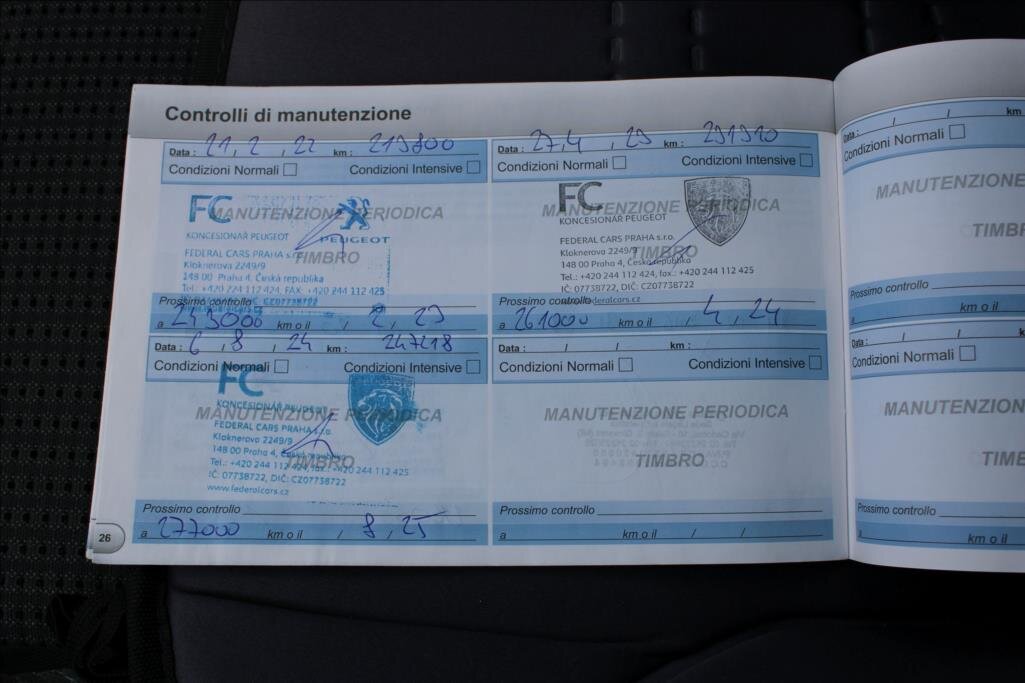 Controlli di manutenzione
Data : 21 / 2 / 22 km : 219800
Condizioni Normali Condizioni Intensive
FC
MANUTENZIONE PERIODICA
KONCESIONÁŘ PEUGEOT PEUGEOT
TIMBRO
FEDERAL CARS PRAHA s.r.o.
Kloknerova 2249/9
148 00 Praha 4, Česká republika
Tel.: +420 244 112 424, FAX: +420 244 112 425
CZ07738722
Prossimo controllo
a 243000 km o il / 2 / 23
Data : 27 / 4 / 23 km : 231310
Condizioni Normali Condizioni Intensive
FC
MANUTENZIONE PERIODICA
KONCESIONÁŘ PEUGEOT
TIMBRO
FEDERAL CARS PRAHA s.r.o.
Kloknerova 2249/9
148 00 Praha 4, Česká republika
Tel.: +420 244 112 424, fax.: +420 244 112 425
IČ: 07738722, DIČ: CZ07738722
www.federalcars.cz
Prossimo controllo
a 261000 km o il / 4 / 24
Data : 6 / 8 / 24 km : 247218
Condizioni Normali Condizioni Intensive
FC
KONCESIONÁŘ PEUGEOT
MANUTENZIONE PERIODICA
FEDERAL CARS PRAHA s.r.o.
Kloknerova 2249/9
148 00 Praha 4, Česká republika
TIMBRO
Tel.: +420 244 112 424, fax.: +420 244 112 425
IČ: 07738722, DIČ: CZ07738722
www.federalcars.cz
Prossimo controllo
a 277000 km o il / 8 / 25
Data : / / km :
Condizioni Normali Condizioni Intensive
MANUTENZIONE PERIODICA
TIMBRO
Prossimo controllo
a km o il / /
26
Data : / / km
Condizioni Normali
MANUTENZIONE
TIMBR
Prossimo controllo
a km o il
Data : / /
Condizioni Normali
MANUTENZION
TIMB
Prossimo controllo
a km o il